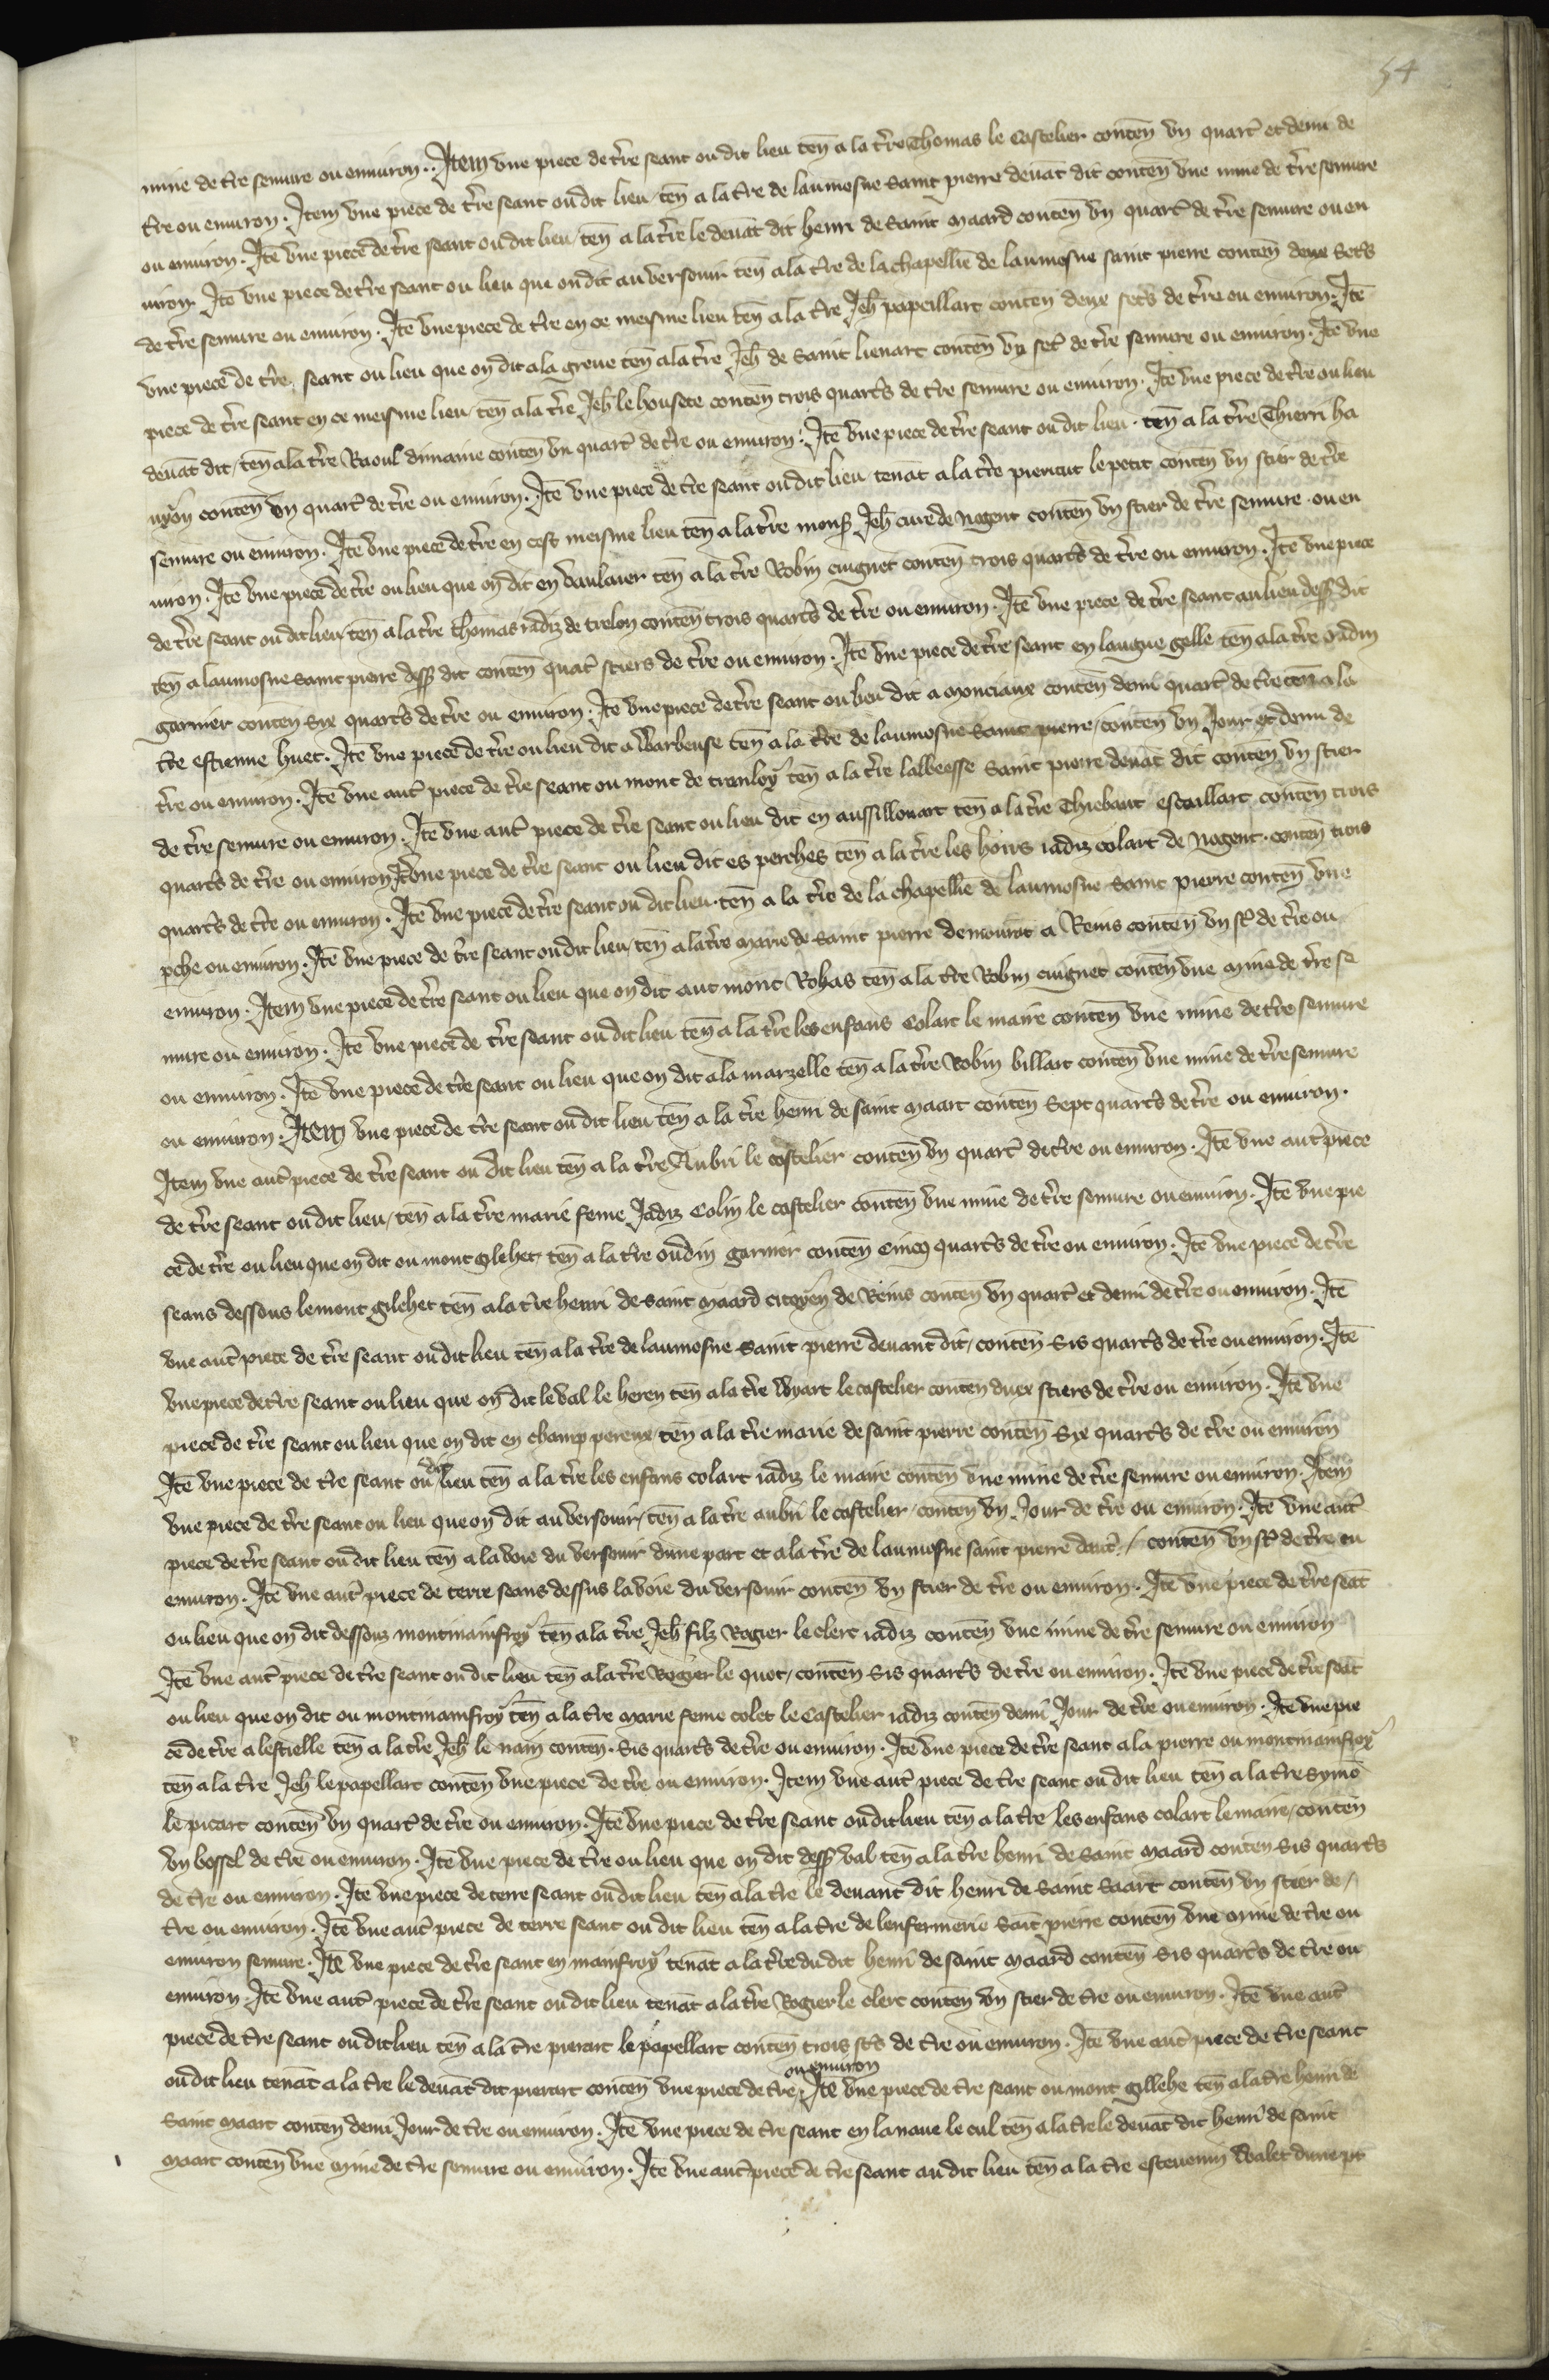 54
mine de tr̃re semure ou enuiron. Item vne piece de tr̃re seant ou dit lieu ten̄ a la tr̃re Thomas le Castelier conten̄ vn quart̾ et demi de
tr̃re ou enuiron. Item vne piece de tr̃re seant ou dit lieu ten̄ a la tr̃re de laumosne Saint pierre deuāt dit conten̄ vne mine de tr̃re semure
ou enuiron. Itē vne piece de tr̃re seant ou dit lieu ten̄ a la tr̃re le deuāt dit henri de Saint Maard conten̄ vn quart̾ de tr̃re semure ou en
uiron. Itē vne piece de tr̃re seant ou lieu que on dit au versouir ten̄ a la tr̃re de la chapellie de laumosne saint pierre conten̄ deux Set̾s
de tr̃re semure ou enuiron. Itē vne piece de tr̃re en ce meisme lieu ten̄ a la tr̃re Jeh̄ papeillart conten̄ deux set̾s de tr̃re ou enuiron. Itē
vne piece de tr̃re seant ou lieu que on dit a la greue ten̄ a la tr̃re Jeh̄ de Saint lienart conten̄ vn set̾ de tr̃re semure ou enuiron. Itē vne
piece de tr̃re seant en ce meisme lieu ten̄ a la tr̃re Jeh̄ le housete conten̄ trois quart̾s de tr̃re semure ou enuiron. Itē vne piece de tr̃re ou lieu
deuāt dit ten̄ a la tr̃re Raoul dimanie conten̄ vn quart̾ de tr̃re ou enuiron. Itē vne piece de tr̃re seant ou dit lieu ten̄ a la tr̃re Thierri ha
nyon conten̄ vn quart̾ de tr̃re ou enuiron. Itē vne piece de tr̃re seant ou dit lieu tenāt a la tr̃re le petit conten̄ vn stier de tr̃re
semure ou enuiron. Itē vne piece de tr̃re en cest meisme lieu ten̄ a la tr̃re mons̃ Jeh̄ cure de Nogent conten̄ vn stier de tr̃re semure ou en
uiron. Itē vne piece de tr̃re ou lieu que on dit en vaulauer ten̄ a la tr̃re Robin cuignet conten̄ trois quart̾s de tr̃re ou enuiron. Itē vne piece
de tr̃re seant ou dit lieu ten̄ a la tr̃re thomas iadiz de trelon conten̄ trois quart̾s de tr̃re ou enuiron. Itē vne piece de tr̃re seant au lieu dess̃ dit
ten̄ a laumosne saint pierre dess̃ dit conten̄ quat̾ stiers de tr̃re ou enuiron. Itē vne piece de tr̃re seant en langue gelle ten̄ a la tr̃re oudin
garnier conten̄ syx quart̾s de tr̃re ou enuiron. Itē vne piece de tr̃re seant ou lieu dit a monciaux conten̄ demi quart̾ de tr̃re ten̄ a la
tr̃re estienne huet. Itē vne piece de tr̃re ou lieu dit a Warbeuse ten̄ a la tr̃re de laumosne Saint pierre conten̄ vn Jour et demi de
tr̃re ou enuiron. Itē vne aut̾ piece de tr̃re seant ou mont de tranloy ten̄ a la tr̃re labbeesse Saint pierre deuāt dit conten̄ vn stier
de tr̃re semure ou enuiron. Itē vne aut̾ piece de tr̃re seant ou lieu dit en aussillonart ten̄ a la tr̃re Thiebaut escaillart conten̄ trois
quart̾s de tr̃re ou enuiron Itē vne piece de tr̃re seant ou lieu dit es perches ten̄ a la tr̃re les hoirs iadiz colart de Nogent conten̄ trois
quart̾s de tr̃re ou enuiron. Itē vne piece de tr̃re seant ou dit lieu ten̄ a la tr̃re de la chapellie de laumosne Saint pierre conten̄ vne
ꝑche ou enuiron. Itē vne piece de tr̃re seant ou dit lieu ten̄ a la tr̃re Marie de Saint pierre demourāt a Reins conten̄ vn st̾ de tr̃re ou
enuiron. Item vne piece de tr̃re seant ou lieu que on dit aut mont Rohas ten̄ a la tr̃re Robin cuignet conten̄ vne mine de tr̃re se
mure ou enuiron. Itē vne piece de tr̃re seant ou dit lieu ten̄ a la tr̃re les enfans Colart le maire conten̄ vne mine de tr̃re semure
ou enuiron. Itē vne piece de tr̃re seant ou lieu que on dit a la marzelle ten̄ a la tr̃re Robin billart conten̄ vne mine de tr̃re semure
ou enuiron. Item vne piece de tr̃re seant ou dit lieu ten̄ a la tr̃re henri de saint Maart conten̄ Sept quart̾s de tr̃re ou enuiron.
Item vne aut̾ piece de tr̃re seant ou dit lieu ten̄ a la tr̃re Aubri le castelier conten̄ vn quart̾ de tr̃re ou enuiron. Itē vne aut̾ piece
de tr̃re seant ou dit lieu ten̄ a la tr̃re marie feme Jadiz Colin le castelier conten̄ vne mine de tr̃re semure ou enuiron. Itē vne pie
ce de tr̃re ou lieu que on dit ou mont glehet ten̄ a la tr̃re oudin garnier conten̄ Cincq quart̾s de tr̃re ou enuiron. Itē vne piece de tr̃re
seans dessous le mont gilehet ten̄ a la tr̃re henri de saint Maard citoyen de Reins conten̄ vn quart̾ et demi de tr̃re ou enuiron. Itē
vne aut̾ piece de tr̃re seant ou dit lieu ten̄ a la tr̃re de laumosne Saint pierre deuant dit conten̄ Sis quart̾s de tr̃re ou enuiron. Itē
vne piece de tr̃re seant ou lieu que on dit le val le heren ten̄ a la tr̃re Wyart le castelier conten̄ duex stiers de tr̃re ou enuiron. Itē vne
piece de tr̃re seant ou lieu que on dit en champ pereux ten̄ a la tr̃re marie de saint pierre conten̄ Syx quart̾s de tr̃re ou enuiron
Itē vne piece de tr̃re seant ou dit lieu ten̄ a la tr̃re les enfans colart iadiz le maire conten̄ vne mine de tr̃re semure ou enuiron. Item
vne piece de tr̃re seant ou lieu que on dit au versouir ten̄ a la tr̃re aubri le castelier conten̄ vn Jour de tr̃re ou enuiron. Itē vne aut̾
piece de tr̃re seant ou dit lieu ten̄ a la voie du versouir dune part et a la tr̃re de laumosne saint pierre conten̄ vn st̾ de tr̃re ou
enuiron. Itē vne aut̾ piece de terre seans dessus la voie du versouir conten̄ vn stier de tr̃re ou enuiron. Itē vne piece de tr̃re seāt
ou lieu que on dit dessouz montmainfroy ten̄ a la tr̃re Jeh̄ filz Rogier le clerc iadiz conten̄ vne mine de tr̃re semure ou enuiron
Itē vne aut̾ piece de tr̃re seant ou dit lieu ten̄ a la tr̃re Rogier le quot conten̄ Sis quart̾s de tr̃re ou enuiron. Itē vne piece de tr̃re seāt
ou lieu que on dit ou montmainfroy ten̄ a la tr̃re Marie feme colet le Castelier iadiz conten̄ demi Jour de tr̃re ou enuiron. Itē vne pie
ce de tr̃re a lestielle ten̄ a la tr̃re Jeh̄ le nain conten̄. Sis quart̾s de tr̃re ou enuiron. Itē vne piece de tr̃re seant a la pierre ou montmainfroy
ten̄ a la tr̃re Jeh̄ le papellart conten̄ vne piece de tr̃re ou enuiron. Item vne aut̾ piece de tr̃re seant ou dit lieu ten̄ a la tr̃re symō
le picart conten̄ vn quart̾ de tr̃re ou enuiron. Itē vne piece de tr̃re seant ou dit lieu ten̄ a la tr̃re les enfans colart le maire conten̄
vn bossel de tr̃re ou enuiron. Itē vne piece de tr̃re ou lieu que on dit dess̃ val ten̄ a la tr̃re henri de Saint Maard conten̄ Sis quart̾s
de tr̃re ou enuiron. Itē vne piece de terre seant ou dit lieu ten̄ a la tr̃re le deuant dit henri de Saint Saart conten̄ vn stier de
tr̃re ou enuiron. Itē vne aut̾ piece de terre seant ou dit lieu ten̄ a la tr̃re de lenfermerie Saīt pierre conten̄ vne mine de tr̃re ou
enuiron semure. Itē vne piece de tr̃re seant en mainfroy tenāt a la tr̃re du dit henri de saint Maard conten̄ Sis quart̾s de tr̃re ou
enuiron. Itē vne aut̾ piece de tr̃re seant ou dit lieu tenāt a la tr̃re Rogier le clerc conten̄ vn stier de tr̃re ou enuiron. Itē vne aut̾
piece de tr̃re seant ou dit lieu ten̄ a la tr̃re pierart le papellart conten̄ trois st̾s de tr̃re ou enuiron. Itē vne aut̾ piece de tr̃re seant
ou dit lieu tenāt a la tr̃re le deuāt dit pierart conten̄ vne piece de tr̃re ou enuiron Itē vne piece de tr̃re seant ou mont gillehe ten̄ a la tr̃re henri de
Saint Maart conten̄ demi Jour de tr̃re ou enuiron. Itē vne piece de tr̃re seant en lanaue le cul ten̄ a la tr̃re le deuāt dit henri de saint
Maart conten̄ vne mine de tr̃re semure ou enuiron. Itē vne aut̾ piece de tr̃re seant au dit lieu ten̄ a la tr̃re esteuenin Walet dune pt